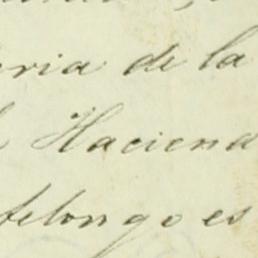 eria de la
l Haciend
telongo es